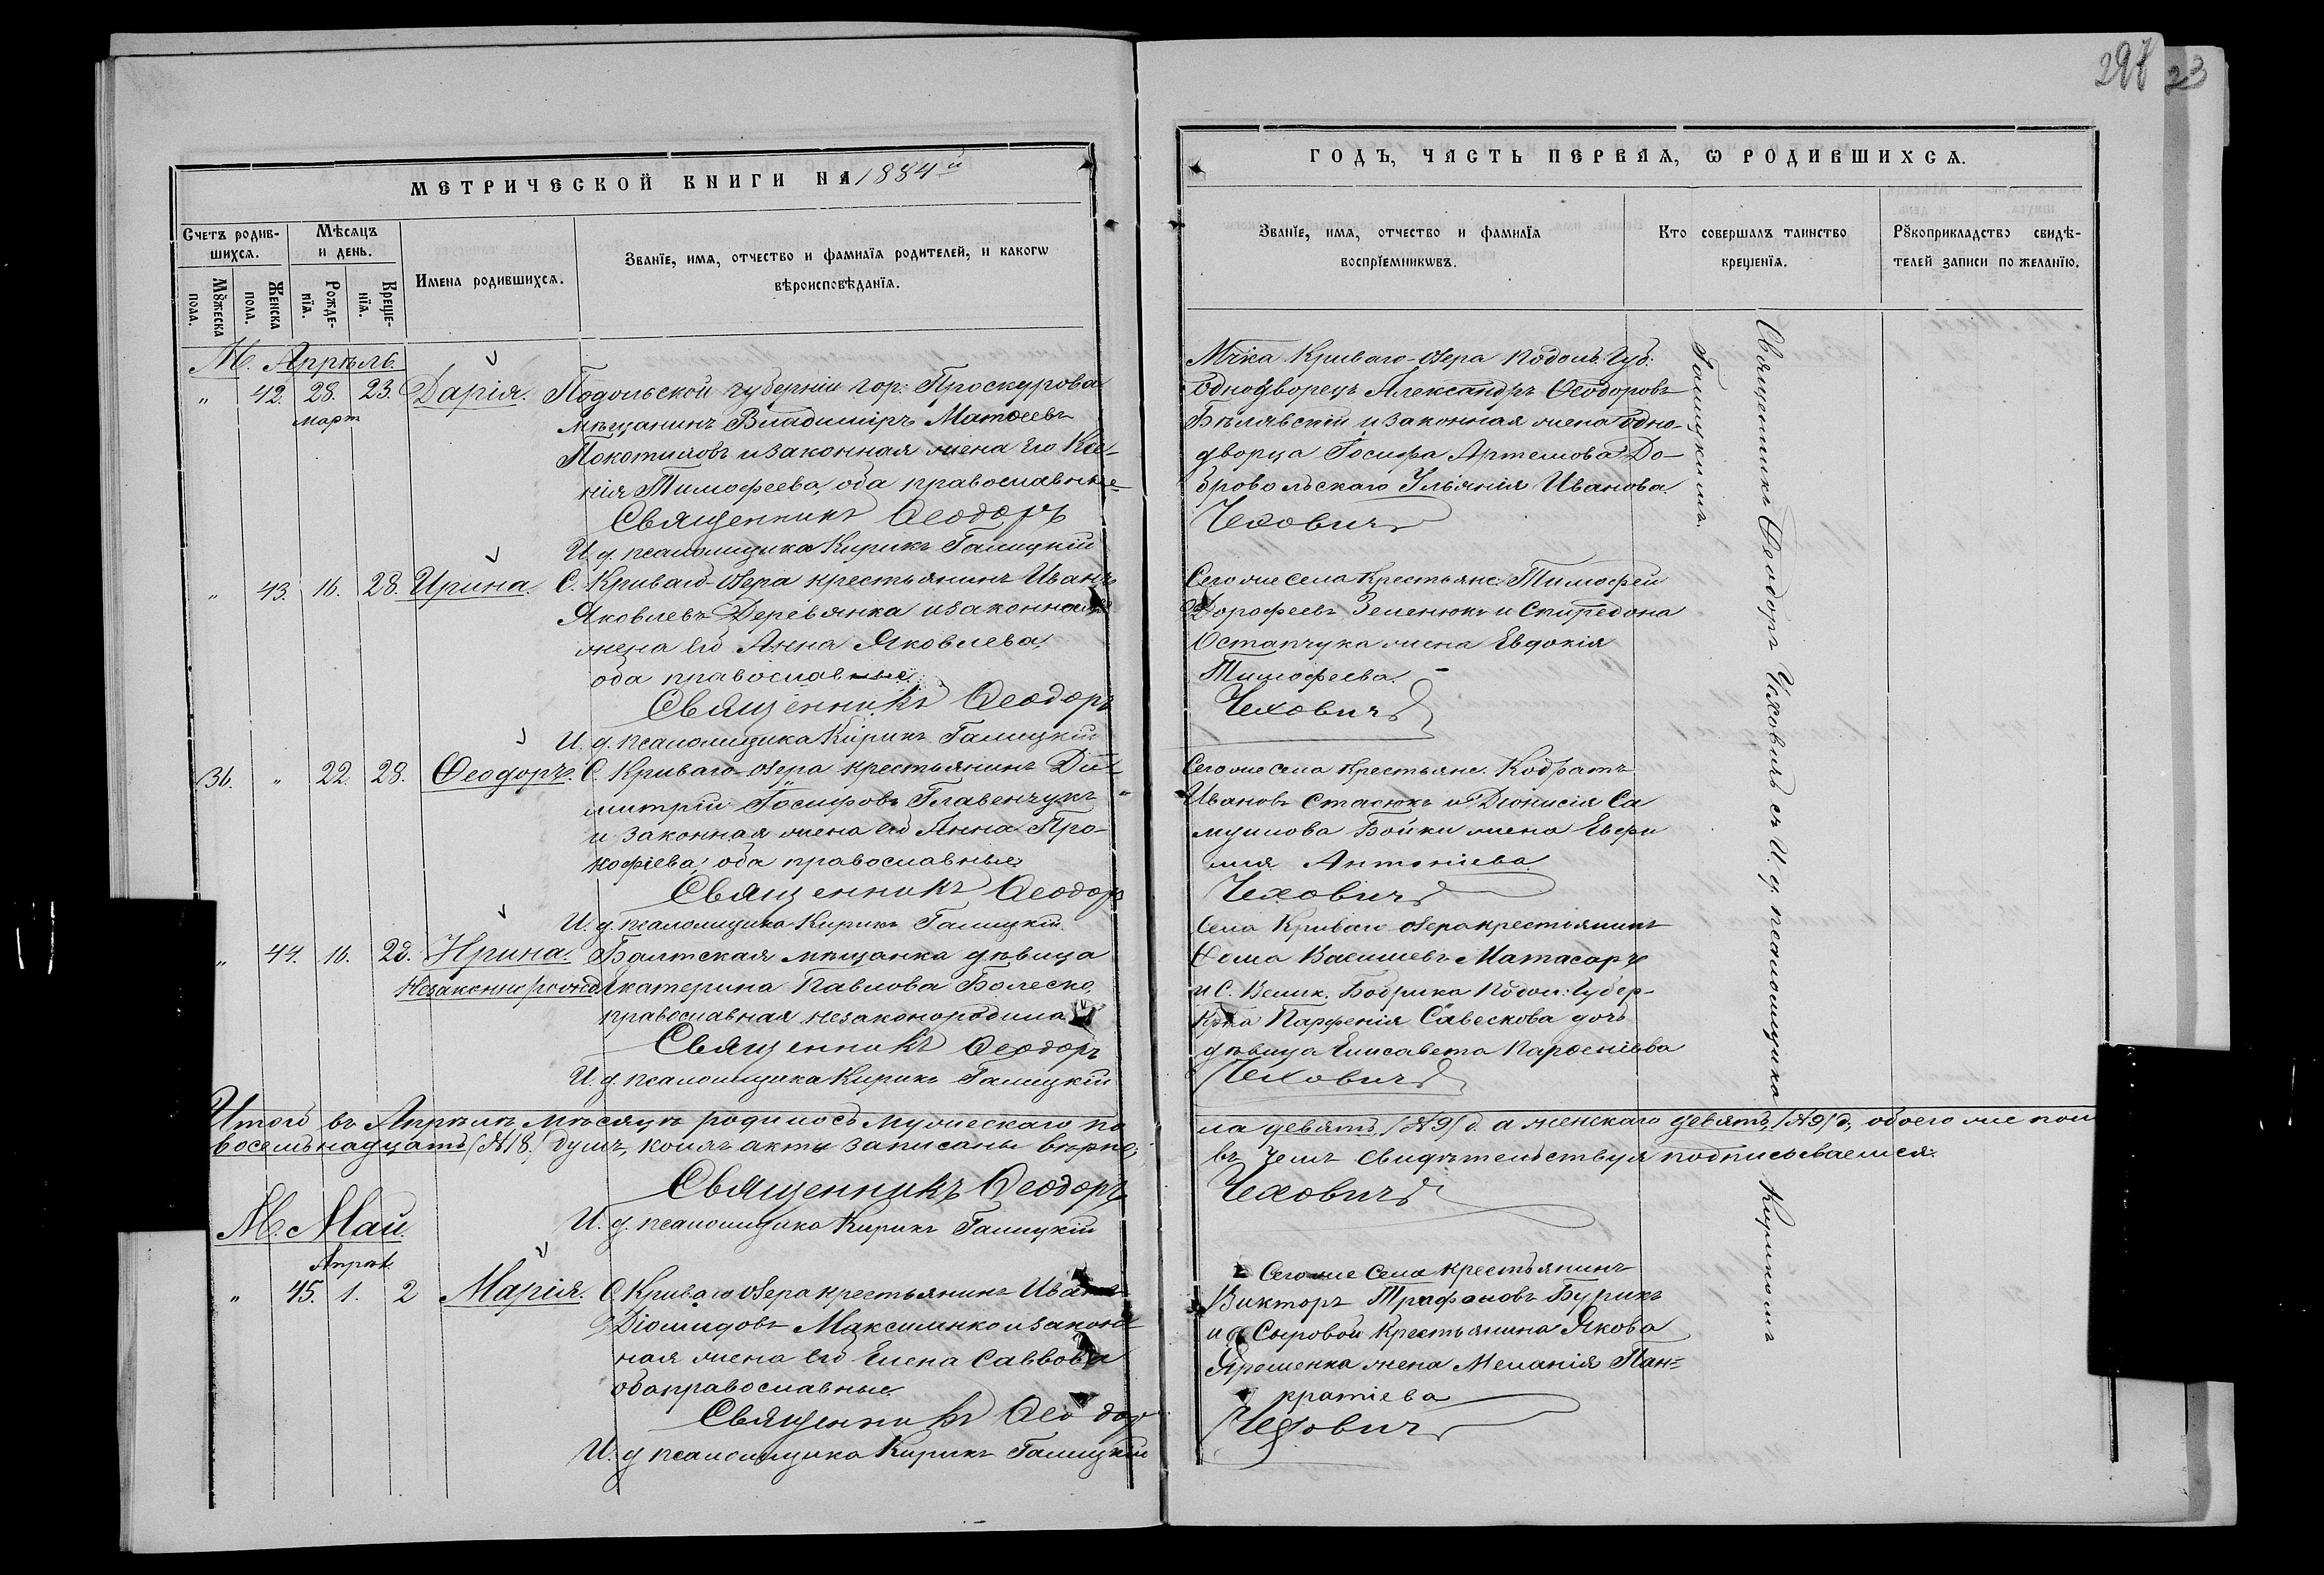 297 23
МЕТРИЧЕСКОЙ КНИГИ НА 1884й
ГОДЪ, ЧАСТЬ ПЕРВАЯ, Ѡ РОДИВШИХСЯ.
Счетъ родив-
шихся.
Мѣсяцъ
и день.
Имена родившихся.
Званїе, имя, отчество и фамилїя родителей, и какогѡ
вѣроисповѣданїя.
Мꙋжеска
пола.
Женска
пола.
Рожде-
нїя.
Креще-
нїя.
Званїе, имя, отчество и фамилїя
воспрїемникѡвъ.
Кто совершалъ таинство
крещенїя.
Рꙋкоприкладство свидѣ-
телей записи по желанїю.
М. Апрѣль.
" 42. 28. 23. Дарія.
март
Подольской губерніи гор: Проскурова
мѣщанинъ Владиміръ Матѳеевъ
Покотиловъ и законная жена его Ксе-
нія Тимофеева, оба православные
Священникъ Ѳеодоръ
И. д. псаломщика Кирикъ Галицкій
Мѣчка Криваго-Озера Подоль. Губ:
однодворецъ Александръ Ѳеодоровъ
Бѣлявскій и законная жена одно-
дворца Іосифа Артемова До-
бровольскаго Ульянія Иванова.
Чеховичъ
" 43. 16. 28. Ирина.
С. Криваго-Озера крестьянинъ Иванъ
Яковлевъ Деревянка и законная
жена его Анна Яковлева,
оба православные.
Священникъ Ѳеодоръ
И. д. псаломщика Кирикъ Галицкій
Сегоже села Крестьяне: Тимофей
Дорофеевъ Зеленюкъ и Спиредона
Остапчука жена Евдокія
Тимофеева.
Чеховичъ
36. " 22. 28. Ѳеодоръ.
С. Криваго-Озера крестьянинъ Ди-
митрій Іосифовъ Главенчукъ
и законная жена его Анна Про-
кофіева, оба православные
Священникъ Ѳеодоръ
И. д. псаломщика Кирикъ Галицкій.
Сегоже села крестьяне. Кодратъ
Ивановъ Стасюкъ и Діонисія Са
муилова Бойки жена Евфи
мія Антоніева
Чеховичъ
" 44. 16. 28. Ирина.
Незаконно рожд
Балтская мѣщанка дѣвица
Екатерина Павлова Болеско,
православная незаконородила
Священникъ Ѳеодоръ
И. д. псаломщика Кирикъ Галицкій
Села Криваго Озера крестьянинъ
Ѳома Василіевъ Матасаръ
и С. Велик. Бобрика Подол: Губер-
Парфенія Савескова дочь
дѣвица Елисавета Парѳеніева
Чеховичъ
Итого въ Апрѣлѣ мѣсяцѣ родилось мужескаго по
ла девять /№9/ д. а женскаго девять /№9/ д, обоего же пол
восемьнадцать /№18./ душъ, коихъ акты записаны вѣрно,
въ чемъ свидѣтельствуя подписываемся.
Священникъ Ѳеодоръ
Чеховичъ
И. д. псаломщика Кирикъ Галицкій
М. Май.
Апрѣл.
" 45. 1. 2 Марія.
С Криваго Озера крестьянинъ Иванъ
Діомидовъ Максименко и закон-
ная жена его Елена Саввова
оба православные.
Священникъ Ѳеодор
И. д псаломщика Кирикъ Галицкій
Сегоже Села крестьянинъ
Викторъ Трифоновъ Бурикъ
и с Сыровой Крестьянина Якова
Ярошенка жена Меланія Пан-
кратіева
Чеховичъ
Священникъ Ѳеодоръ Чеховичъ съ И. д. псаломщика Кирикомъ
Галицкимъ.